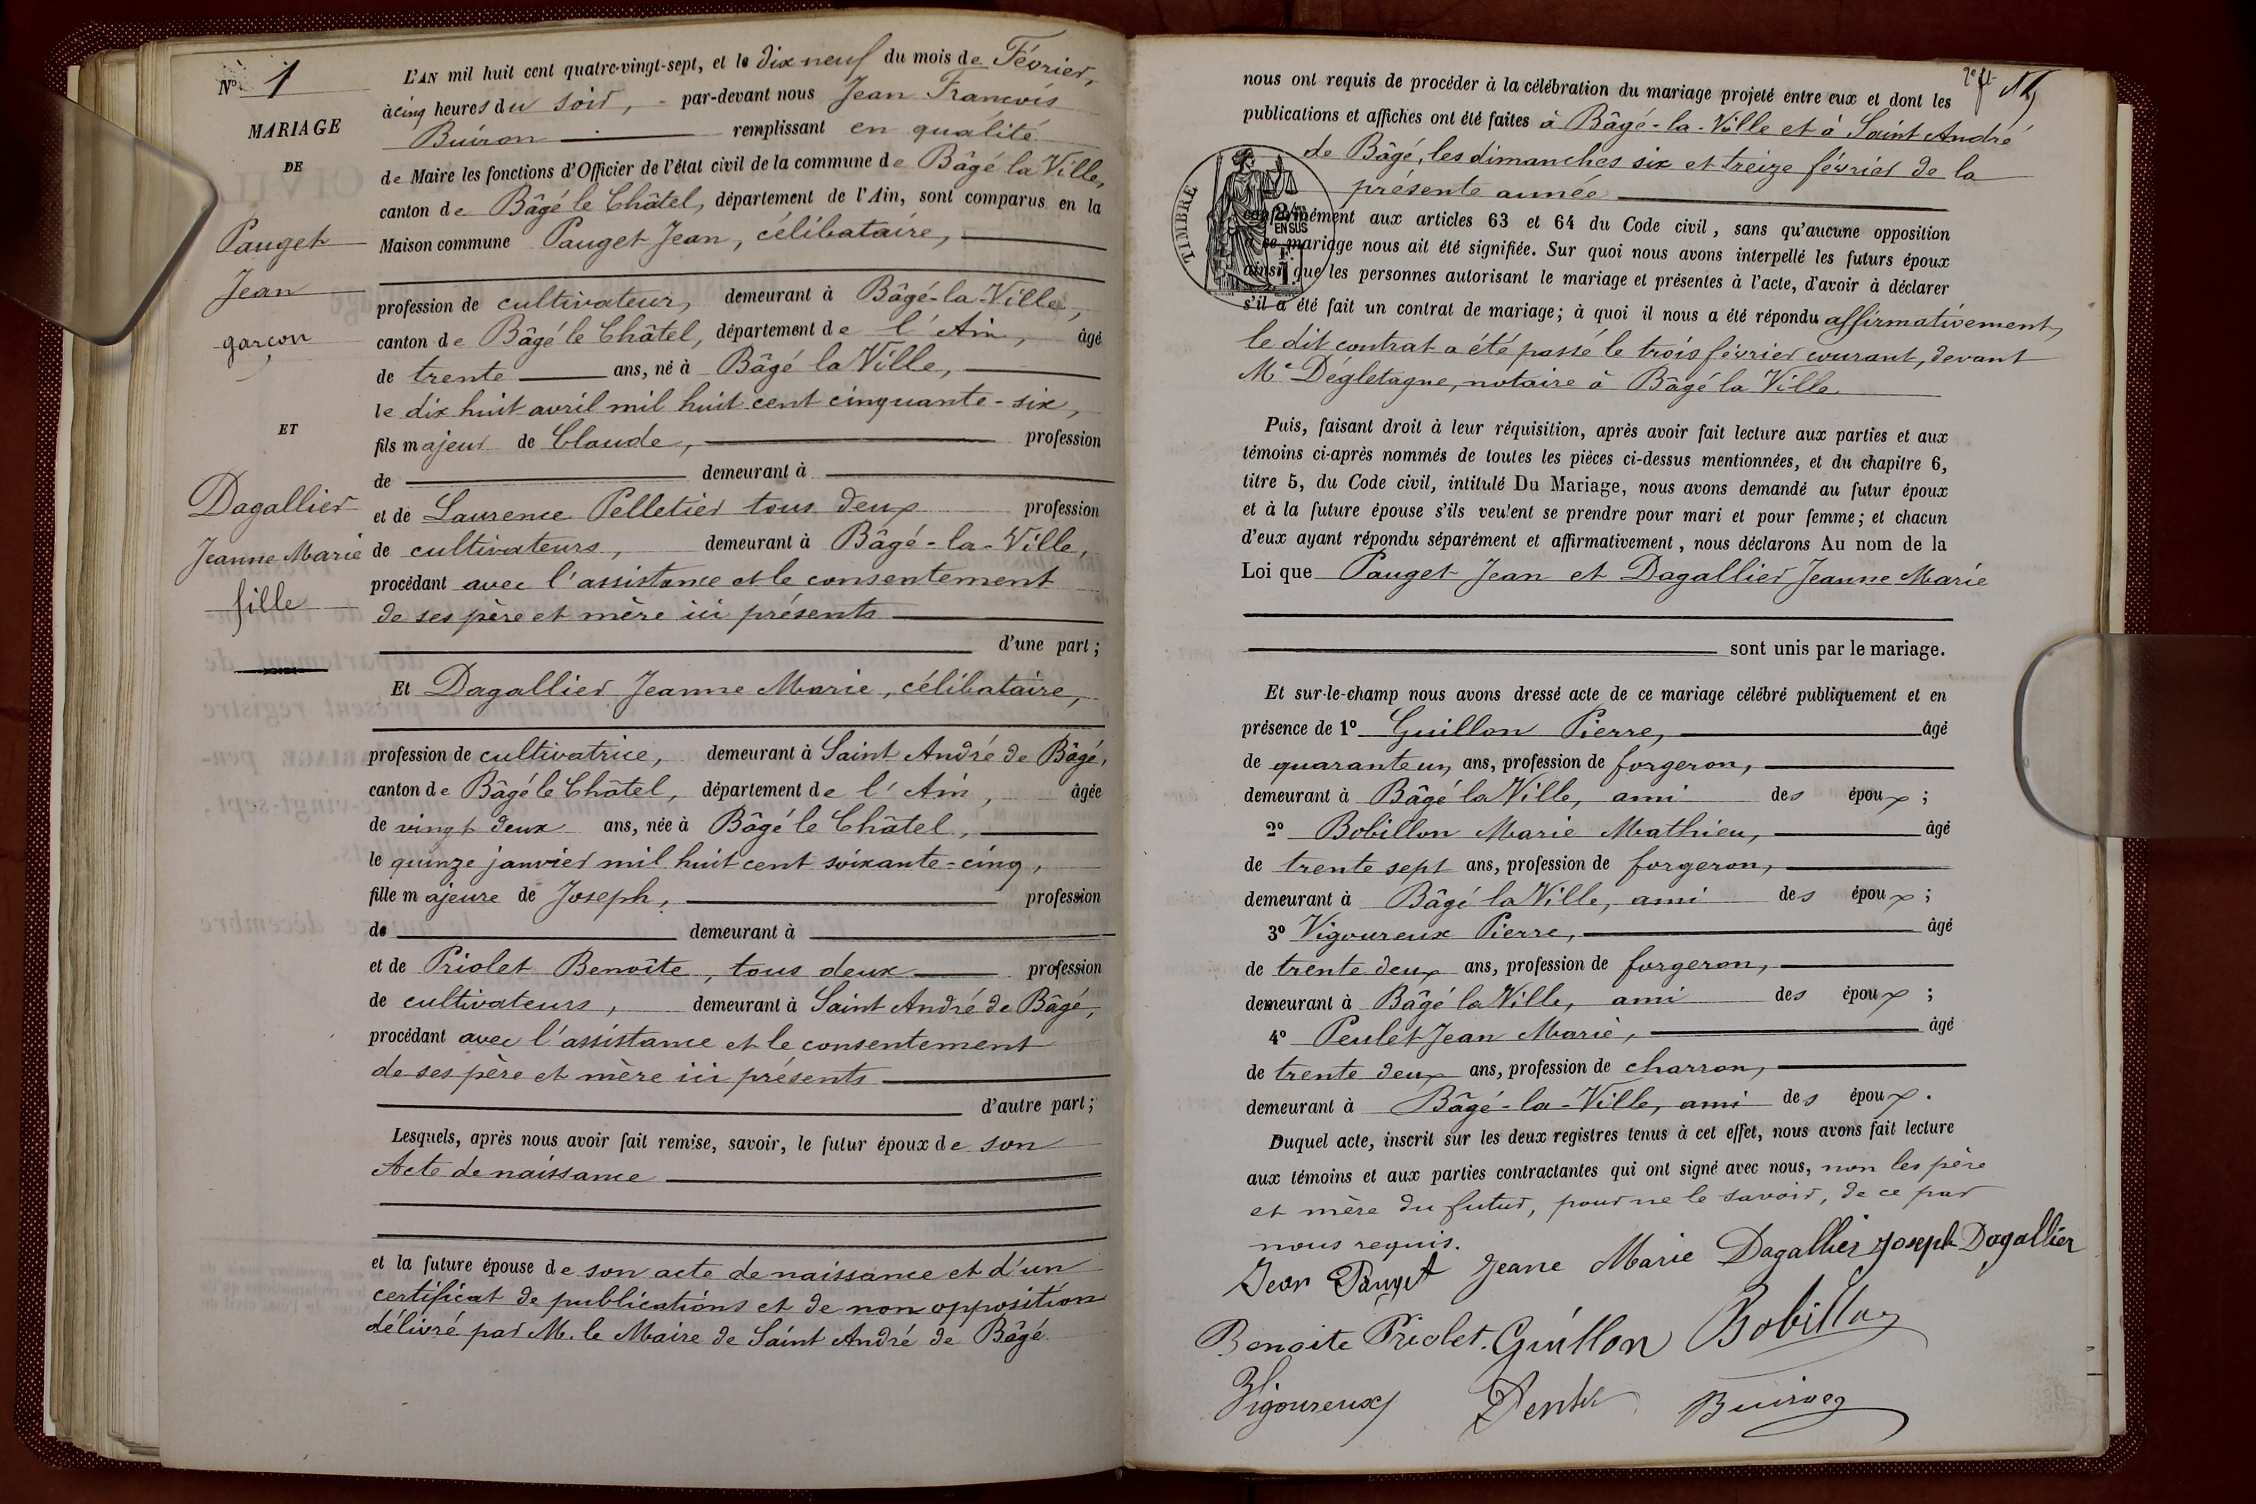 No 1
MARIAGE
DE
Pauget
Jean
garçon
ET
Dagallier
Jeanne Marie
fille
L'AN mil huit cent quatre-vingt-sept, et le dix neuf du mois de Février,
à cinq heures du soir, - par-devant nous Jean François
Buiron remplissant en qualité
de Maire les fonctions d'Officier de l'état civil de la commune de Bâgé la Ville,
canton de Bâgé le Châtel, département de l'Ain, sont comparus en la
Maison commune Pauget Jean, célibataire,
profession de cultivateur, demeurant à Bâgé-la-Ville,
canton de Bâgé le Châtel, département de l'Ain, âgé
de trente ans, né à Bâgé la Ville,
le dix huit avril mil huit cent cinquante-six,
fils majeur de Claude, profession
de demeurant à
et de Laurence Pelletier tous deux profession
de cultivateurs, demeurant à Bâgé-la-Ville,
procédant avec l'assistance et le consentement
de ses père et mère ici présents
d'une part;
Et Dagallier Jeanne Marie, célibataire,
profession de cultivatrice, demeurant à Saint André de Bâgé,
canton de Bâgé le Châtel, département de l'Ain, âgée
de vingt deux ans, née à Bâgé le Châtel,
le quinze janvier mil huit cent soixante-cinq,
fille majeure de Joseph, profession
de demeurant à
et de Priolet Benoîte, tous deux profession
de cultivateurs, demeurant à Saint André de Bâgé,
procédant avec l'assistance et le consentement
de ses père et mère ici présents
d'autre part;
Lesquels, après nous avoir fait remise, savoir, le futur époux de son
Acte de naissance
et la future épouse de son acte de naissance et d'un
certificat de publications et de non opposition
délivré par M. le Maire de Saint André de Bâgé
2e ft
nous ont requis de procéder à la célébration du mariage projeté entre eux et dont les
publications et affiches ont été faites à Bâgé-la-Ville et à Saint André
de Bâgé, les dimanches six et treize février de la
présente année
TIMBRE
2/10 EN SUS
conformément aux articles 63 et 64 du Code civil, sans qu'aucune opposition
ce mariage nous ait été signifiée. Sur quoi nous avons interpellé les futurs époux
ainsi que les personnes autorisant le mariage et présentes à l'acte, d'avoir à déclarer
s'il a été fait un contrat de mariage; à quoi il nous a été répondu affirmativement,
le dit contrat a été passé le trois février courant, devant
Me Dégletagne, notaire à Bâgé la Ville
Puis, faisant droit à leur réquisition, après avoir fait lecture aux parties et aux
témoins ci-après nommés de toutes les pièces ci-dessus mentionnées, et du chapitre 6,
titre 5, du Code civil, intitulé Du Mariage, nous avons demandé au futur époux
et à la future épouse s'ils veulent se prendre pour mari et pour femme; et chacun
d'eux ayant répondu séparément et affirmativement, nous déclarons Au nom de la
Loi que Pauget Jean et Dagallier Jeanne Marie
sont unis par le mariage.
Et sur-le-champ nous avons dressé acte de ce mariage célébré publiquement et en
présence de 1º Guillon Pierre, âgé
de quarante un ans, profession de forgeron,
demeurant à Bâgé la Ville, ami des époux;
2º Bobillon Marie Mathieu, âgé
de trente sept ans, profession de forgeron,
demeurant à Bâgé la Ville, ami des époux;
3º Vigoureux Pierre, âgé
de trente deux ans, profession de forgeron,
demeurant à Bâgé la Ville, ami des époux;
4º Peulet Jean Marie, âgé
de trente deux ans, profession de charron,
demeurant à Bâgé-la-Ville, ami des époux.
Duquel acte, inscrit sur les deux registres tenus à cet effet, nous avons fait lecture
aux témoins et aux parties contractantes qui ont signé avec nous, non les père
et mère du futur, pour ne le savoir, de ce par
nous requis.
Jean Pauget Jeane Marie Dagallier Joseph Dagallier
Benoite Priolet. Guillon Bobillon
Vigoureux Buiron